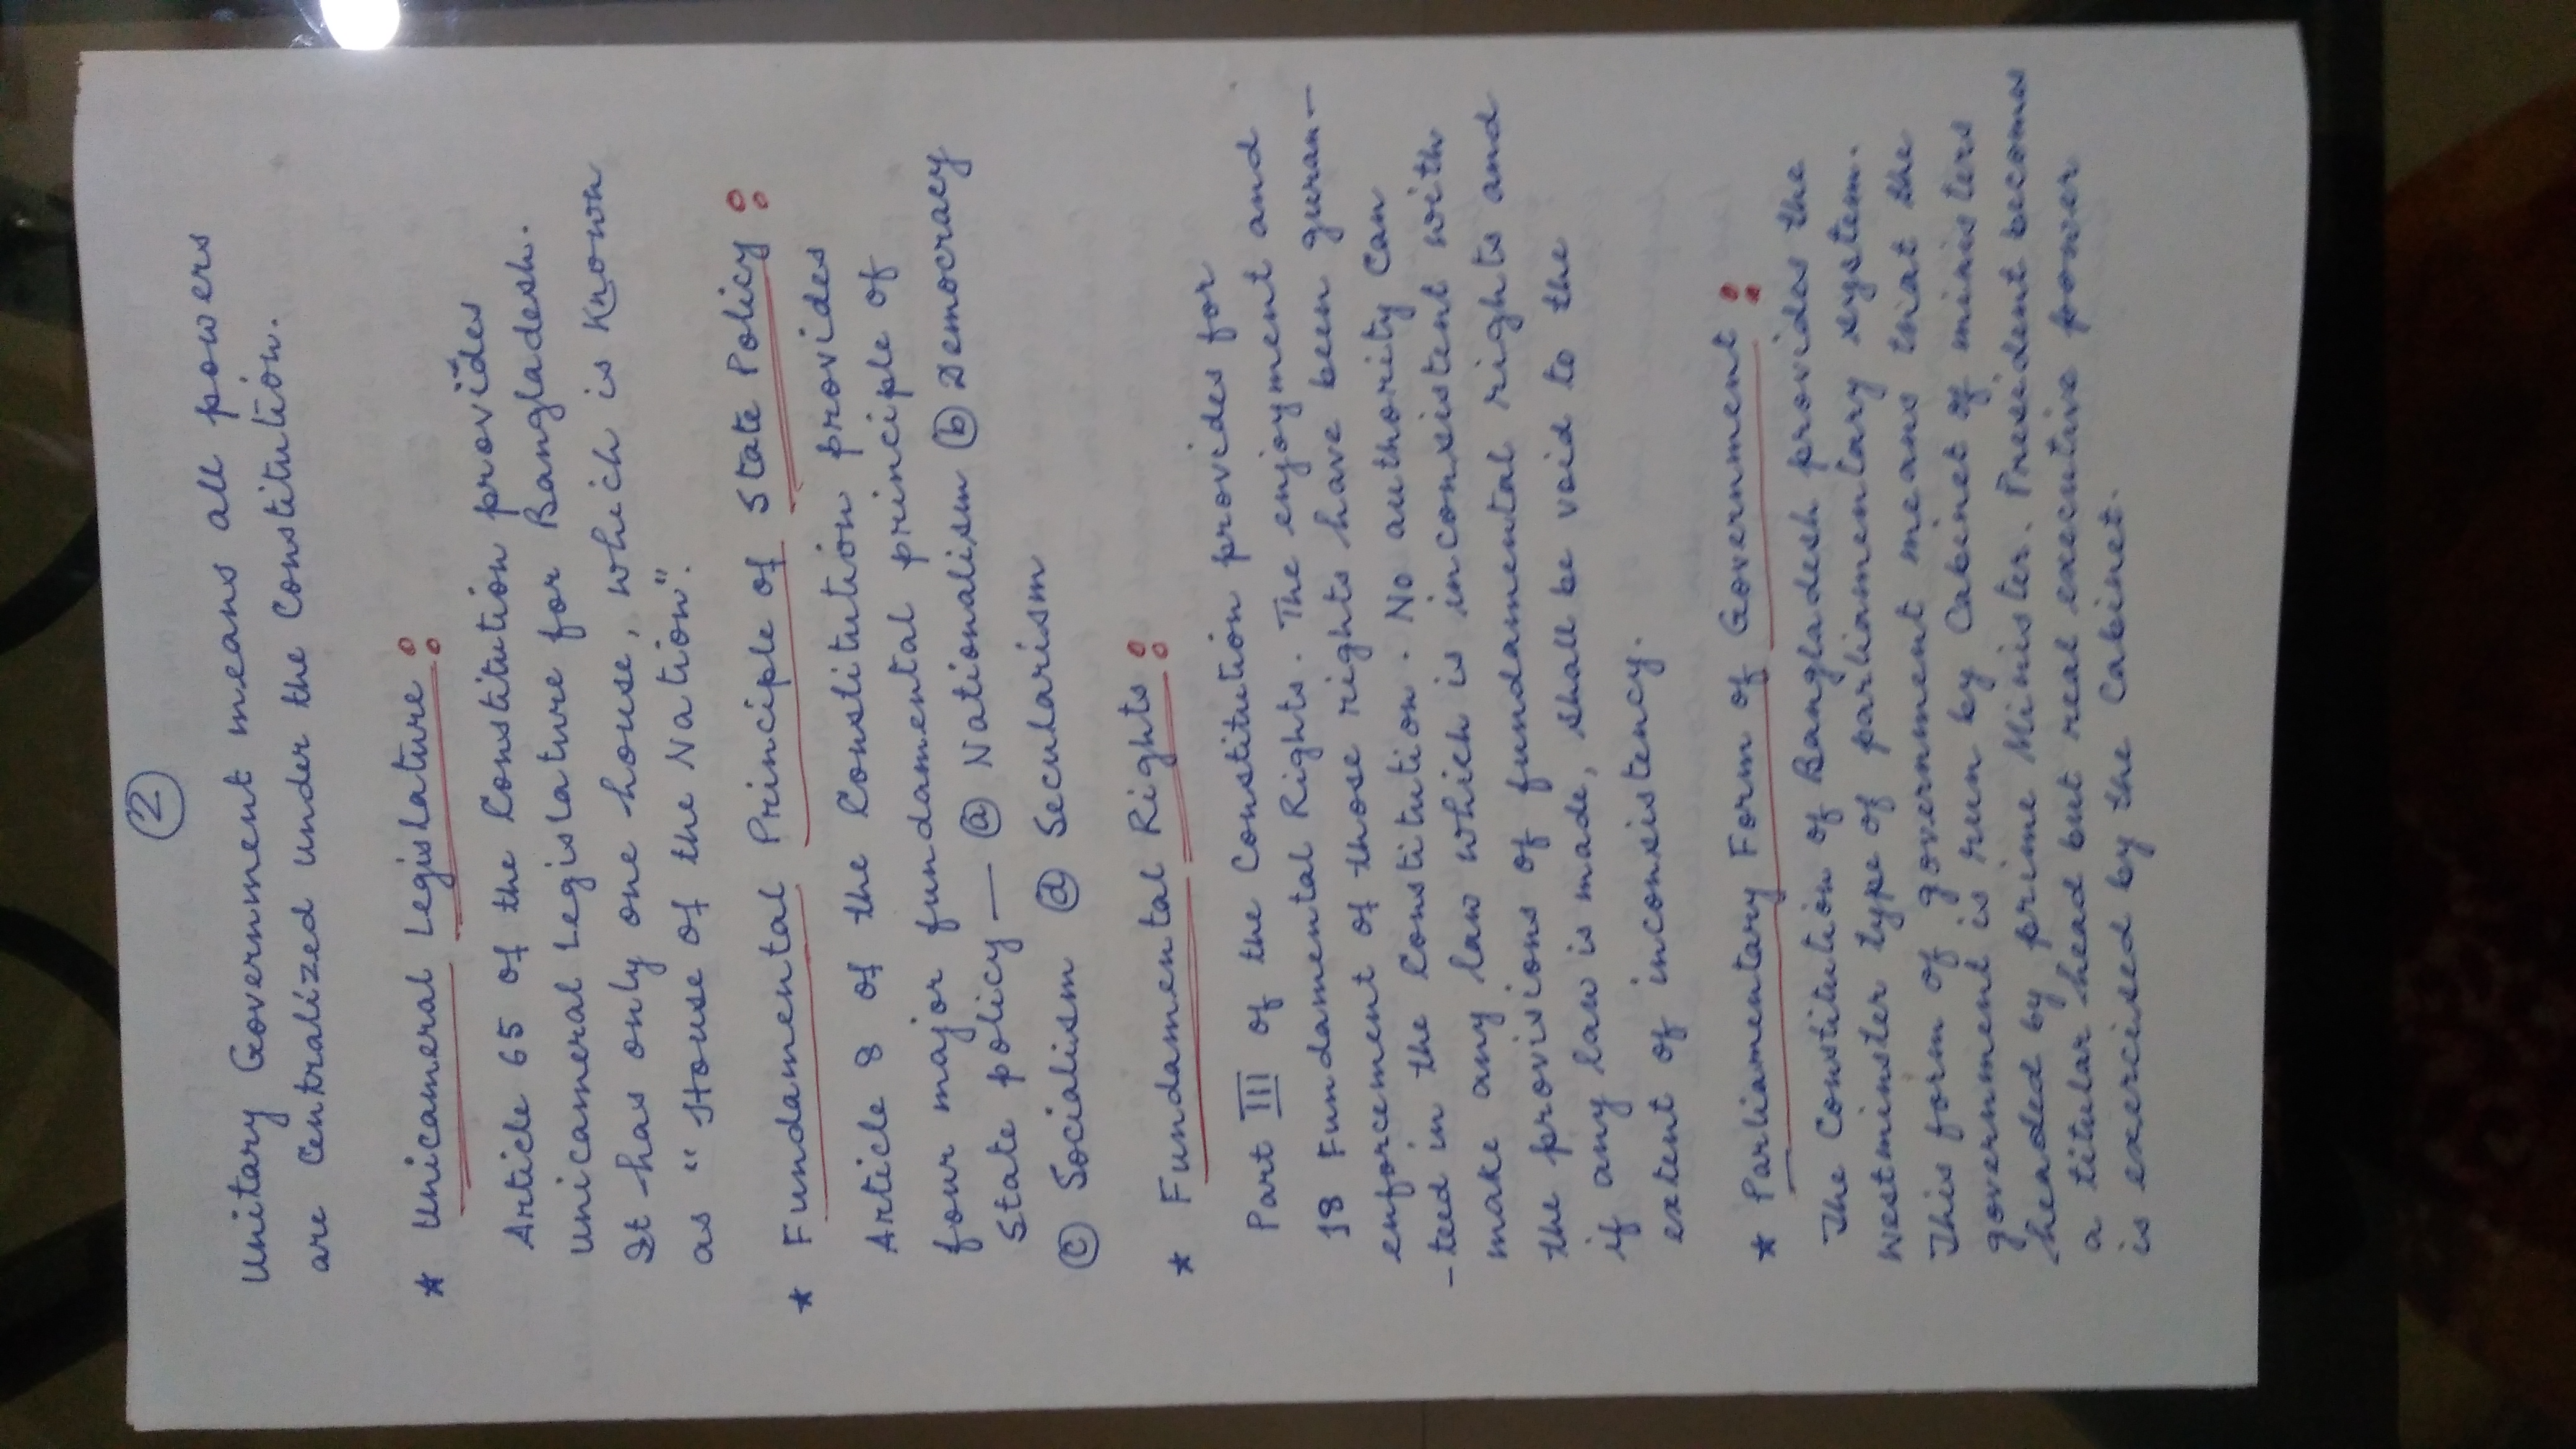 2
Unitary Government means all powers
are Centralized under the Constitution.
* Unicameral Legislature :
Article 65 of the Constitution provides
Unicameral Legislature for Bangladesh.
It has only one house, which is Known
as "House of the Nation".
* Fundamental Principle of State Policy :
Article 8 of the Constitution provides
four major fundamental principle of
State policy — (a) Nationalism (b) Democracy
(c) Socialism (d) Secularism
* Fundamental Rights :
Part III of the Constitution provides for
18 Fundamental Rights. The enjoyment and
enforcement of those rights have been guran-
-teed in the Constitution. No authority Can
make any law which is inconsistent with
the provisions of fundamental rights and
if any law is made, shall be void to the
extent of inconsistency.
* Parliamentary Form of Government :
The Constitution of Bangladesh provides the
westminster type of parliamentary system.
This form of government means that the
government is run by Cabinet of ministers
headed by prime Minister. President becomes
a titular head but real executive power
is exercised by the Cabinet.